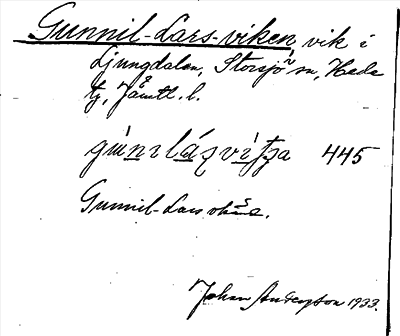 Gunnil-Lars-viken, vik i
Ljungdalen, Storsjö sn, Hede
tg, Jämtl. l.
445
Gunnil-Lars
Johan Anderson 1933.